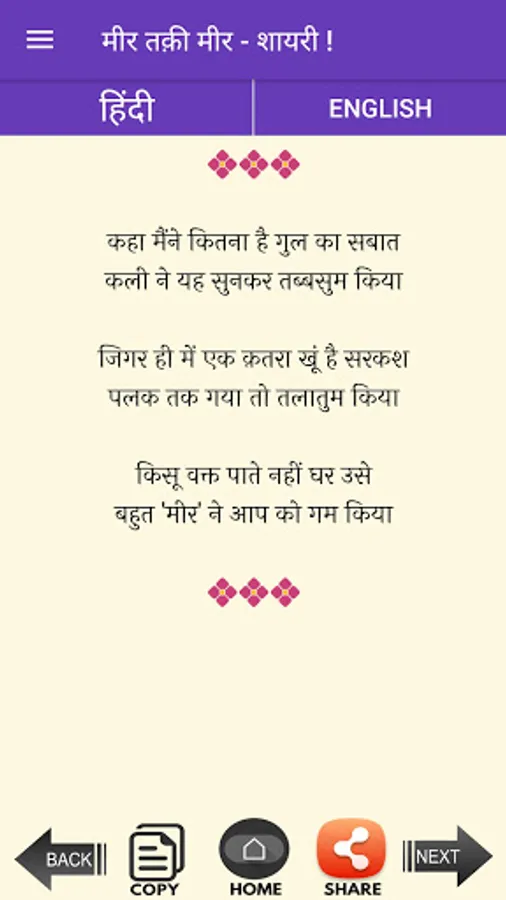 मीर तक़ी मीर - शायरी !
हिंदी
ENGLISH
कहा मैंने कितना है गुल का सबात
कली ने यह सुनकर तब्बसुम किया
जिगर ही में एक क़तरा खूं है सरकश
पलक तक गया तो तलातुम किया
किसू वक्त पाते नहीं घर उसे
बहुत 'मीर' ने आप को गम किया
BACK
COPY
HOME
SHARE
NEXT